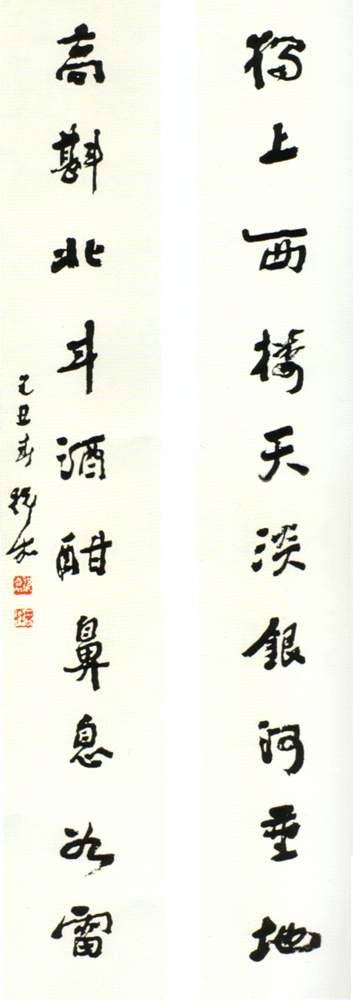 獨上西樓天淡銀河垂地
高斟北斗酒酣鼻息如雷
乙丑春